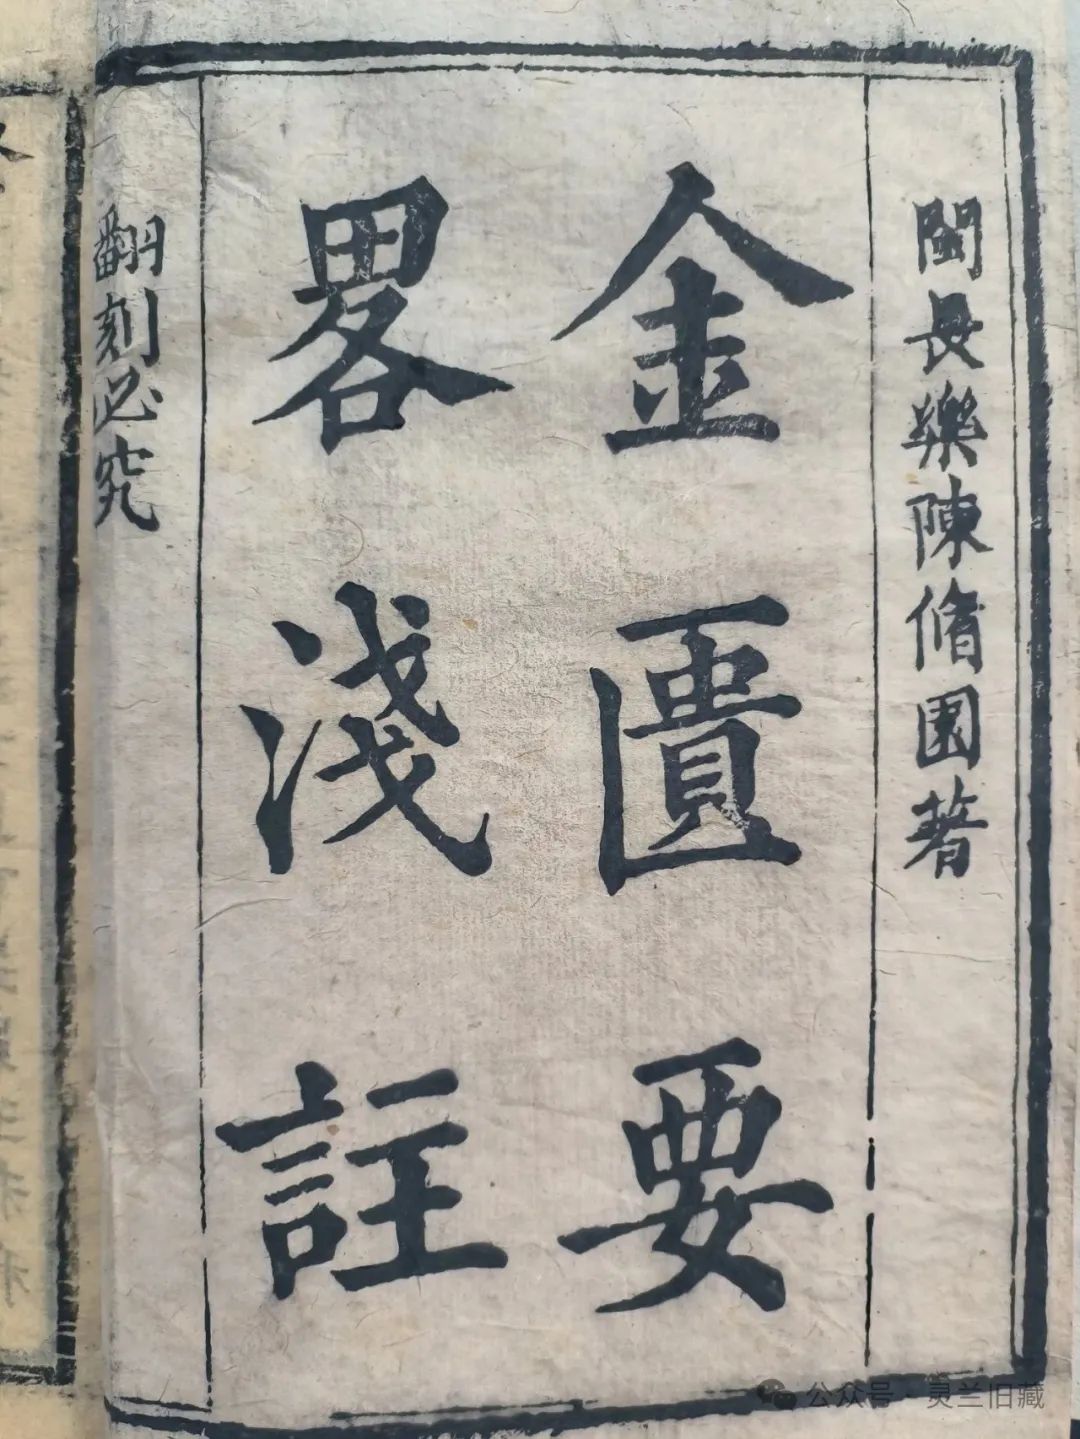 閩長樂陳脩園著
金匱要
畧淺註
翻刻必究
公众号·灵兰旧藏